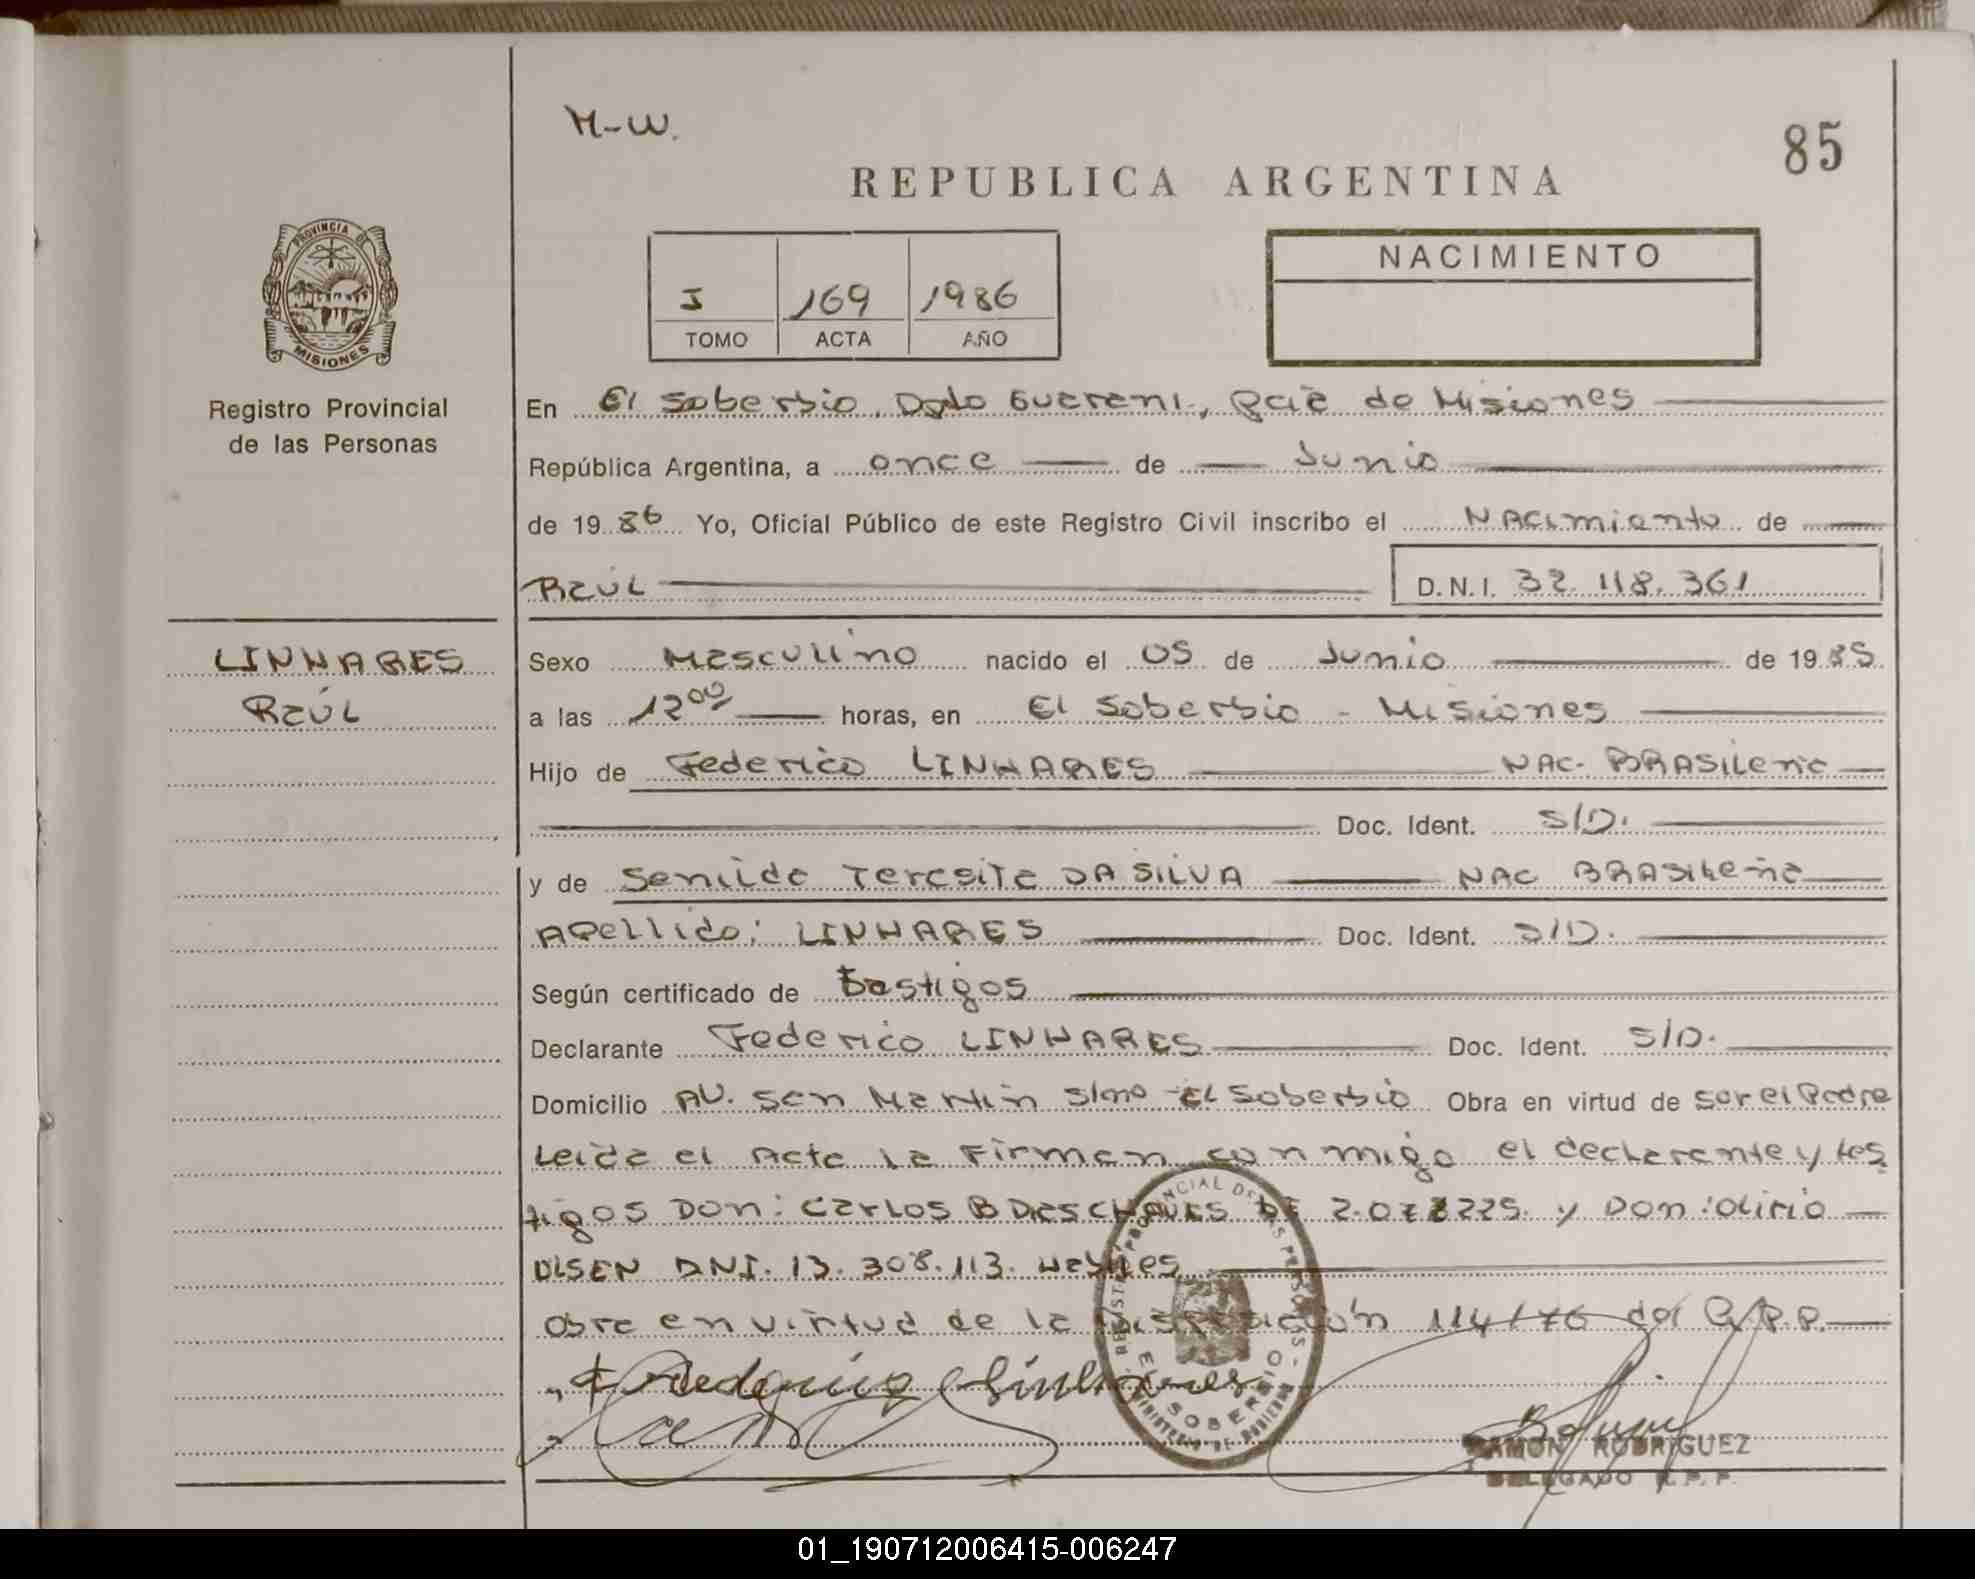 M-W.
85
REPUBLICA ARGENTINA
PROVINCIA DE
MISIONES
Registro Provincial
de las Personas
I 169 1986
TOMO ACTA AÑO
NACIMIENTO
En El Soberbio, Dpto Guarani, Pcia de Misiones
República Argentina, a once de Junio
de 1986 Yo, Oficial Público de este Registro Civil inscribo el Nacimiento de
Raúl D.N.I. 32.118.361
LINHARES
Raúl
Sexo Masculino nacido el 05 de Junio de 1985
a las 12⁰⁰ horas, en El Soberbio - Misiones
Hijo de Federico LINHARES NAC. BRASILeña
Doc. Ident. S/D.
y de Senilda Teresita DA SILVA NAC BRASILeña
Apellido: LINHARES Doc. Ident. S/D.
Según certificado de testigos
Declarante Federico LINHARES Doc. Ident. S/D.
Domicilio AV. San Martin S/no El Soberbio Obra en virtud de ser el Padre
Leida el Acta la Firman conmigo el declarante y tes
tigos Don: Carlos B 2.077225. y Don: Olirio
OLSEN DNI. 13.308.113. Habiles
Obra en virtud de la Disposición 114/76 del R.P.P.
Federico Linhares
REGISTRO PROVINCIAL DE LAS PERSONAS
EL SOBERBIO
MINISTERIO DE GOBIERNO
RAMON RODRIGUEZ
DELEGADO R.P.P.
01_190712006415-006247